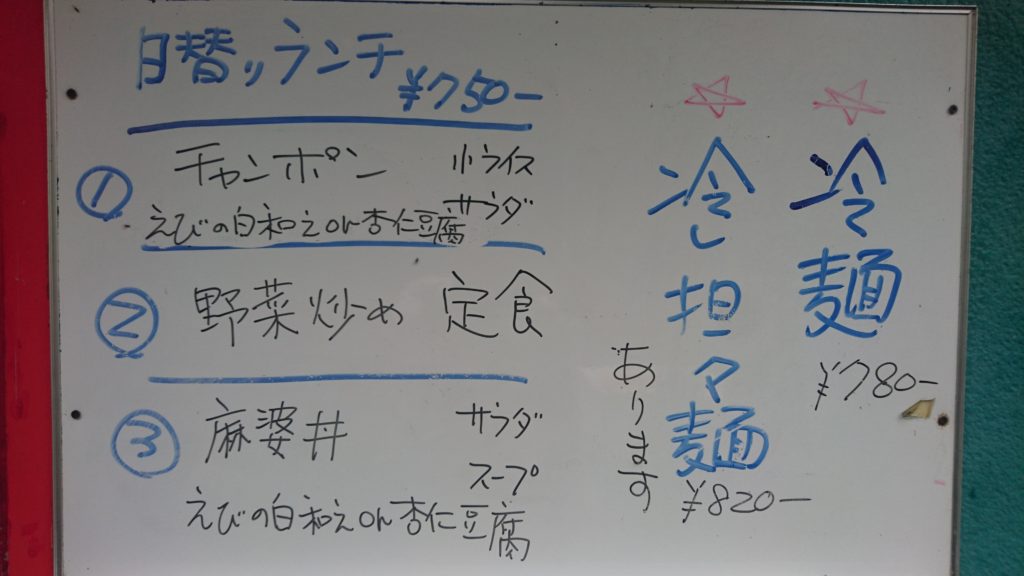 日替りランチ
¥750-
① チャンポン 小ライス
サラダ
えびの白和えor杏仁豆腐
② 野菜炒め 定食
③ 麻婆丼 サラダ
スープ
えびの白和えor杏仁豆腐
☆冷麺
¥780-
☆冷し担々麺
¥820-
あります